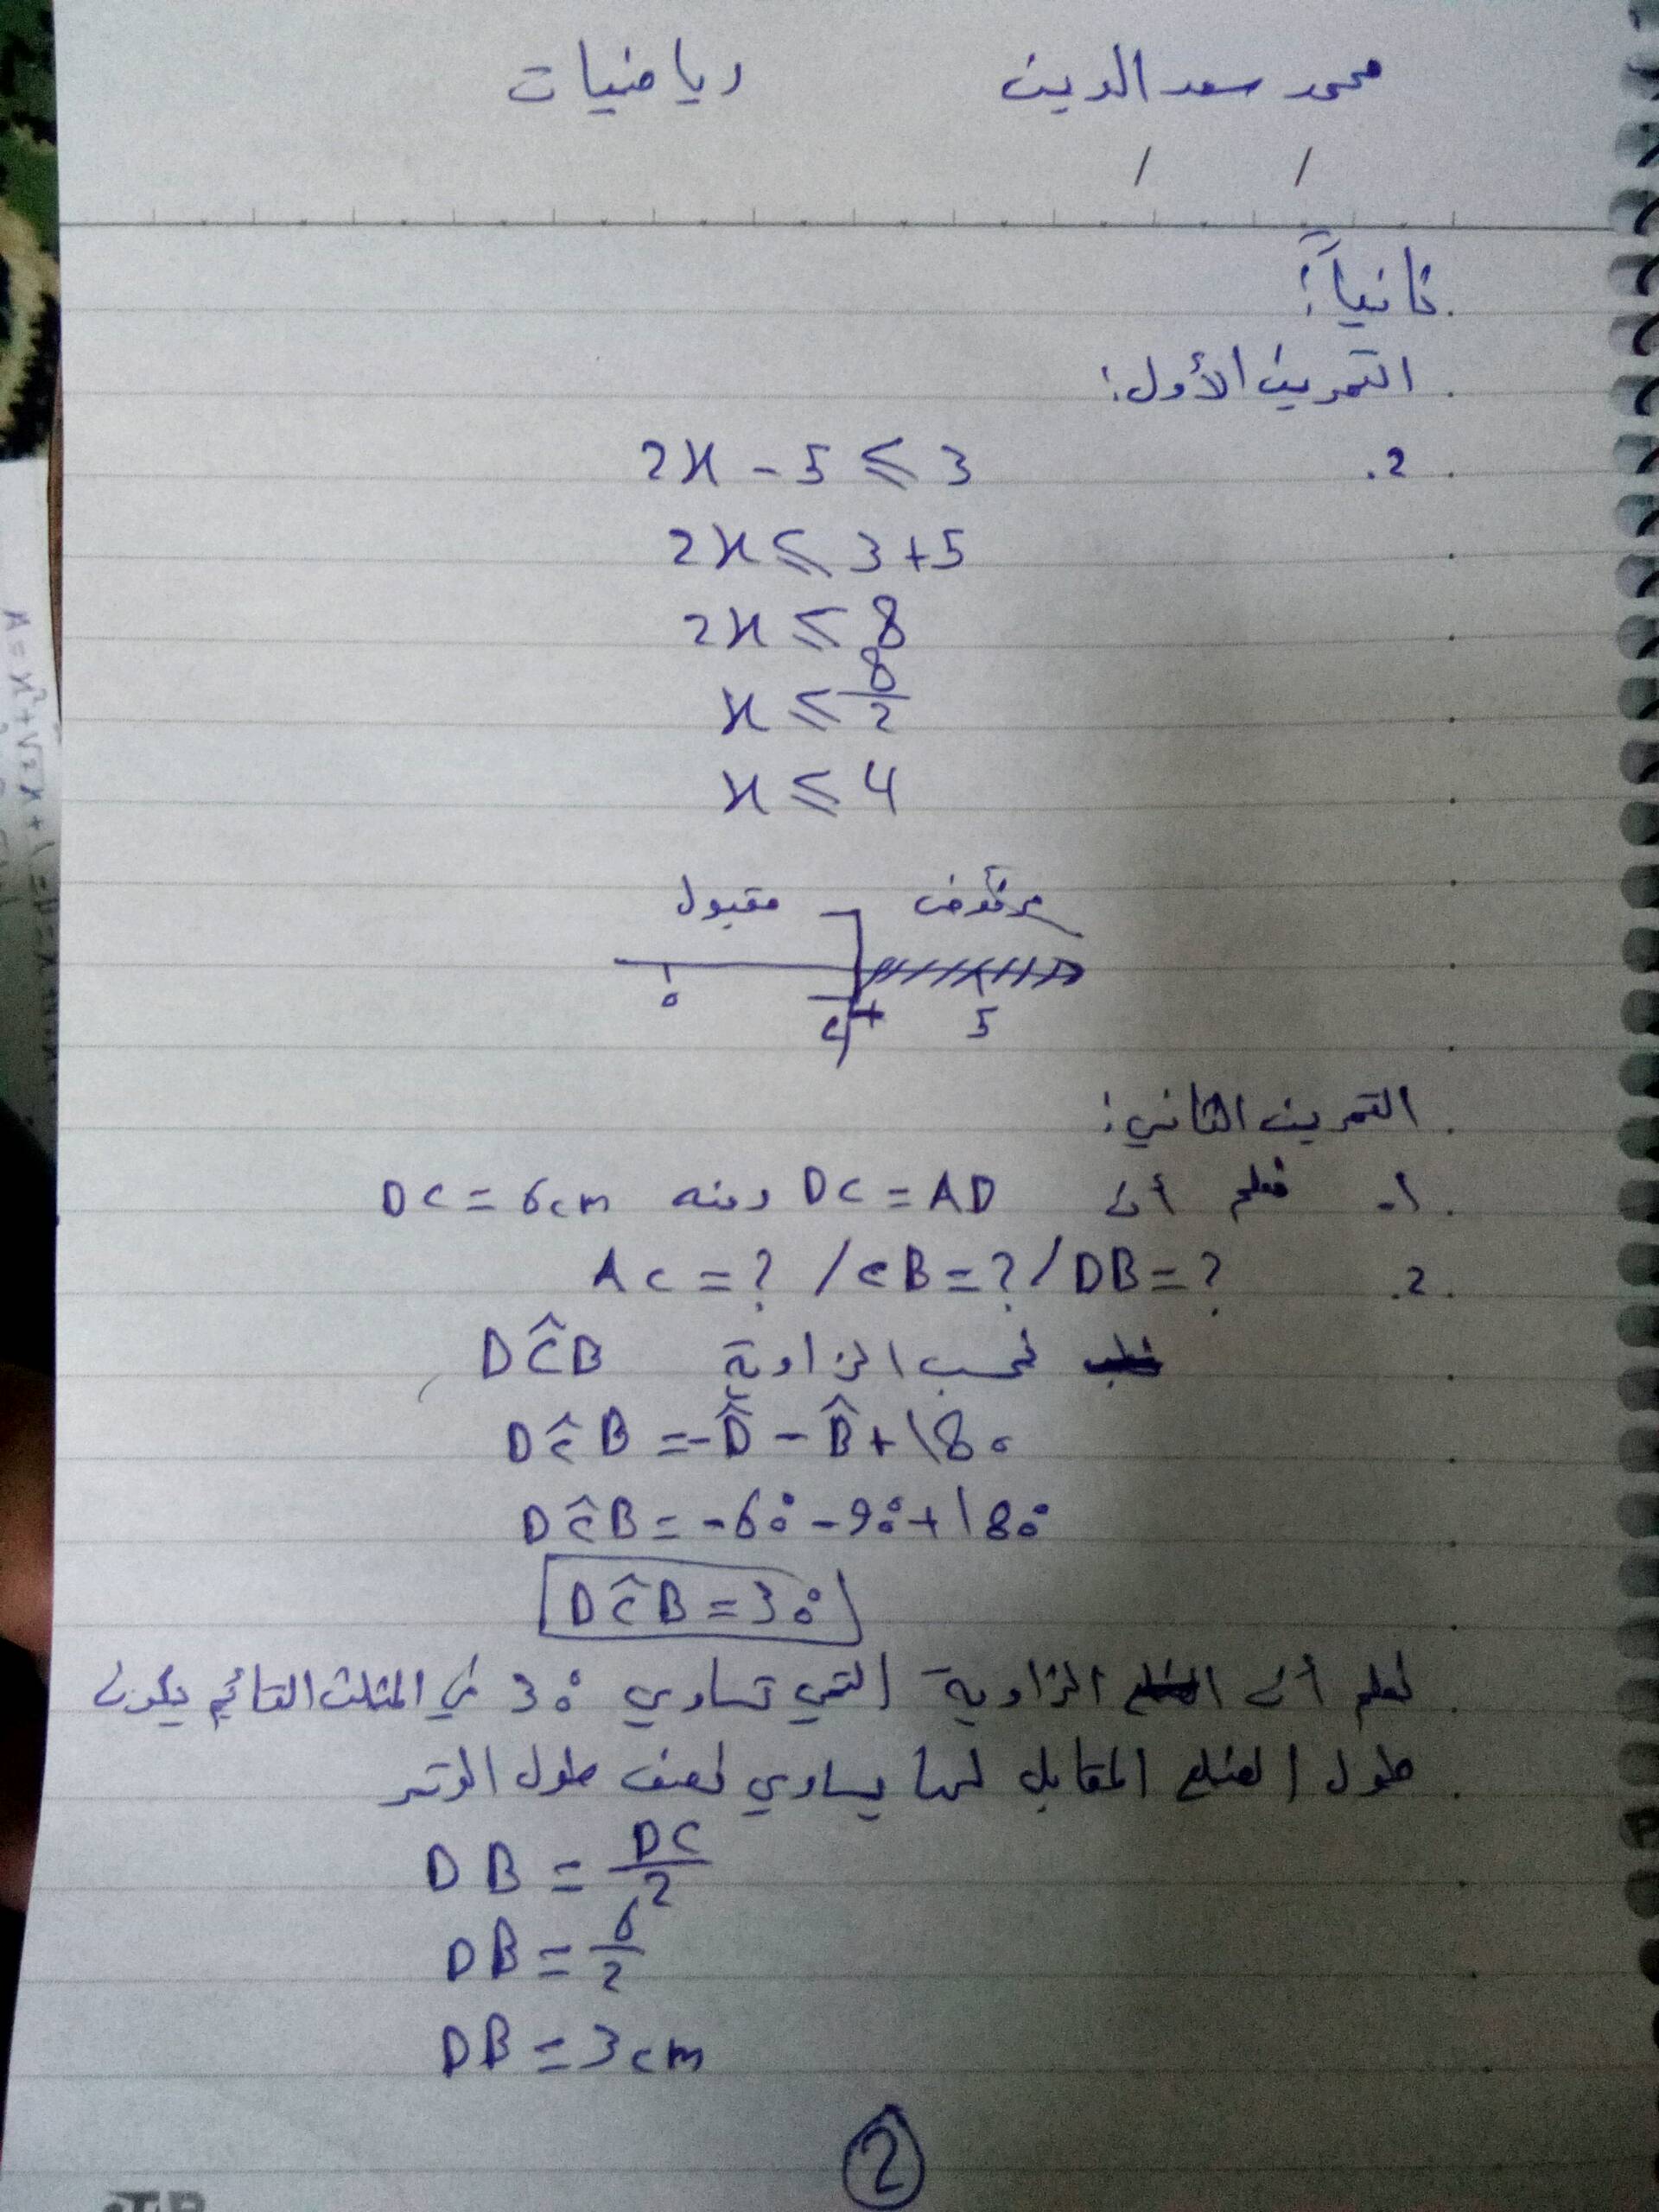 محمد سعد الدين رياضيات
/ /
ثانياً:
التمرين الأول:
2. 2x - 5 ⩽ 3
2x ⩽ 3 + 5
2x ⩽ 8
x ⩽ 8/2
x ⩽ 4
مقبول مرفوض
0 4 + 5
التمرين الثاني:
1. نعلم أن DC = AD ومنه DC = 6cm
2. AC = ? / CB = ? / DB = ?
نحسب الزاوية DĈB
DĈB = -D̂ - B̂ + 180
DĈB = -60° - 90° + 180°
DĈB = 30°
نعلم أن الزاوية التي تساوي 30° في المثلث القائم يكون
طول الضلع المقابل لها يساوي نصف طول الوتر
DB = DC/2
DB = 6/2
DB = 3cm
2